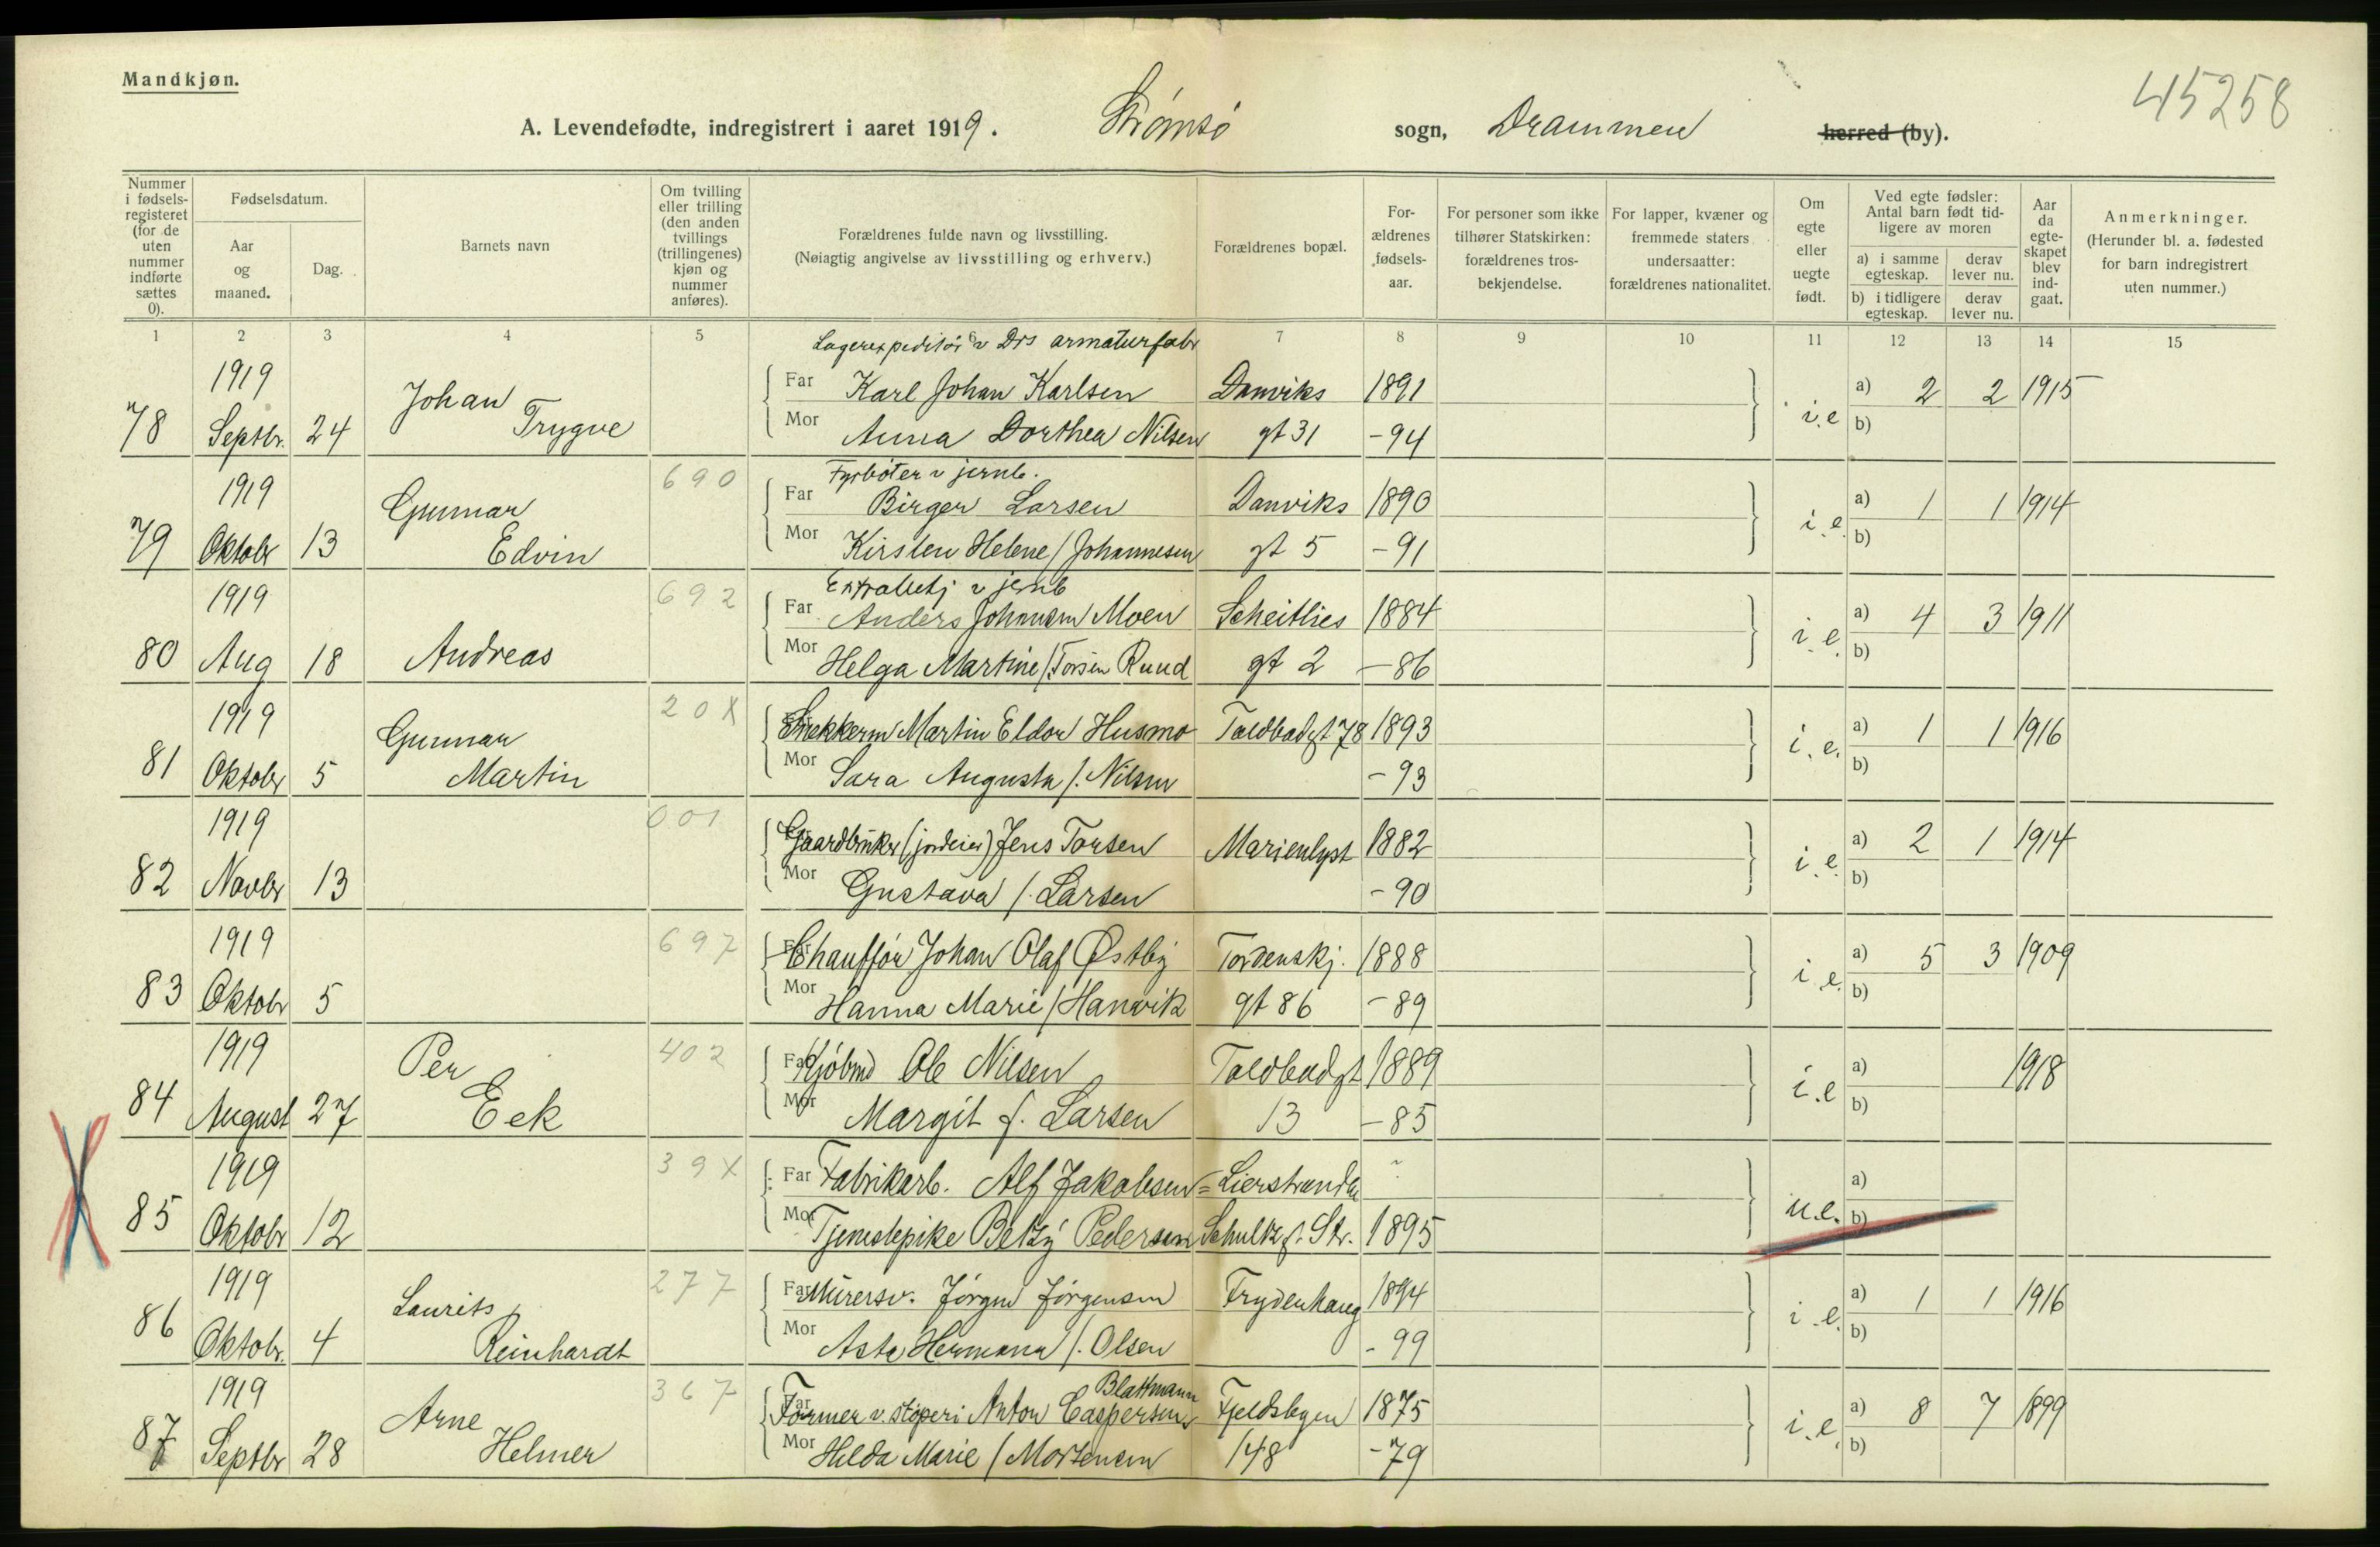 Mandkjøn.
45258
A. Levendefødte, indregistrert i aaret 1919. Strømsø sogn, Drammen herred (by).
Nummer i fødsels-registeret (for de uten nummer indførte sættes 0).
Fødselsdatum.
Aar og maaned.
Dag.
Barnets navn
Om tvilling eller trilling (den anden tvillings (trillingenes) kjøn og nummer anføres).
Forældrenes fulde navn og livsstilling.
(Nøiagtig angivelse av livsstilling og erhverv.)
Forældrenes bopæl.
For-ældrenes fødsels-aar.
For personer som ikke tilhører Statskirken: forældrenes tros-bekjendelse.
For lapper, kvæner og fremmede staters undersaatter: forældrenes nationalitet.
Om egte eller uegte født.
Ved egte fødsler: Antal barn født tid-ligere av moren
a) i samme egteskap.
derav lever nu.
b) i tidligere egteskap.
derav lever nu.
Aar da egte-skapet blev ind-gaat.
Anmerkninger.
(Herunder bl. a. fødested for barn indregistrert uten nummer.)
1 2 3 4 5 7 8 9 10 11 12 13 14 15
Lagerexpeditør v Drs armaturfabr
1919 Far Karl Johan Karlsen Danviks 1891 a) 2 2 1915
78 Septbr. 24 Johan Trygve Mor Anna Dorthea Nilsen gt 31 -94 i.e b)
690 Fyrbøter v jernb.
1919 Far Birger Larsen Danviks 1890 a) 1 1 1914
79 Oktobr 13 Gunnar Edvin Mor Kirsten Helene / Johannesen gt 5 -91 i.e. b)
692 Extrabetj v jernb
1919 Far Anders Johansen Moen Scheitlies 1884 a) 4 3 1911
80 Aug 18 Andreas Mor Helga Martine /. Torsen Ruud gt 2 -86 i.e. b)
1919 20X Snekkerm Martin Eldor Husmo Toldbodgt 78 1893 a) 1 1 1916
81 Oktobr 5 Gunnar Martin Mor Sara Augusta /. Nilsen -93 i.e. b)
1919 001 Gaardbruker (jordeier) Jens Torsen Marienlyst 1882 a) 2 1 1914
82 Novbr 13 Mor Gustava /. Larsen -90 i.e. b)
1919 697 Chauffør Johan Olaf Østby Tordenskj. 1888 a) 5 3 1909
83 Oktobr 5 Mor Hanna Marie / Hanvik gt 86 -89 i.e. b)
1919 402 Far Kjøbmd Ole Nilsen Toldbodgt 1889 a) 1918
84 August 27 Per Eek Mor Margit f. Larsen 13 -85 i.e b)
1919 39X Far Fabrikarb. Alf Jakobsen = Lierstranda a)
85 Oktobr 12 Mor Tjenestepike Betzy Pedersen Schultz gt. Str. 1895 u.e. b)
1919 277 Far Murersv. Jørgen Jørgensen Frydenhaug 1894 a) 1 1 1916
86 Oktobr. 4 Laurits Reinhardt Mor Asta Hermana /. Olsen -99 i.e. b)
Blattmann
1919 367 Far Former v støperi Anton Caspersen Fjeldsbyen 1875 a) 8 7 1899
87 Septbr 28 Arne Helmer Mor Hilda Marie / Mortensen 148 -79 i.e. b)